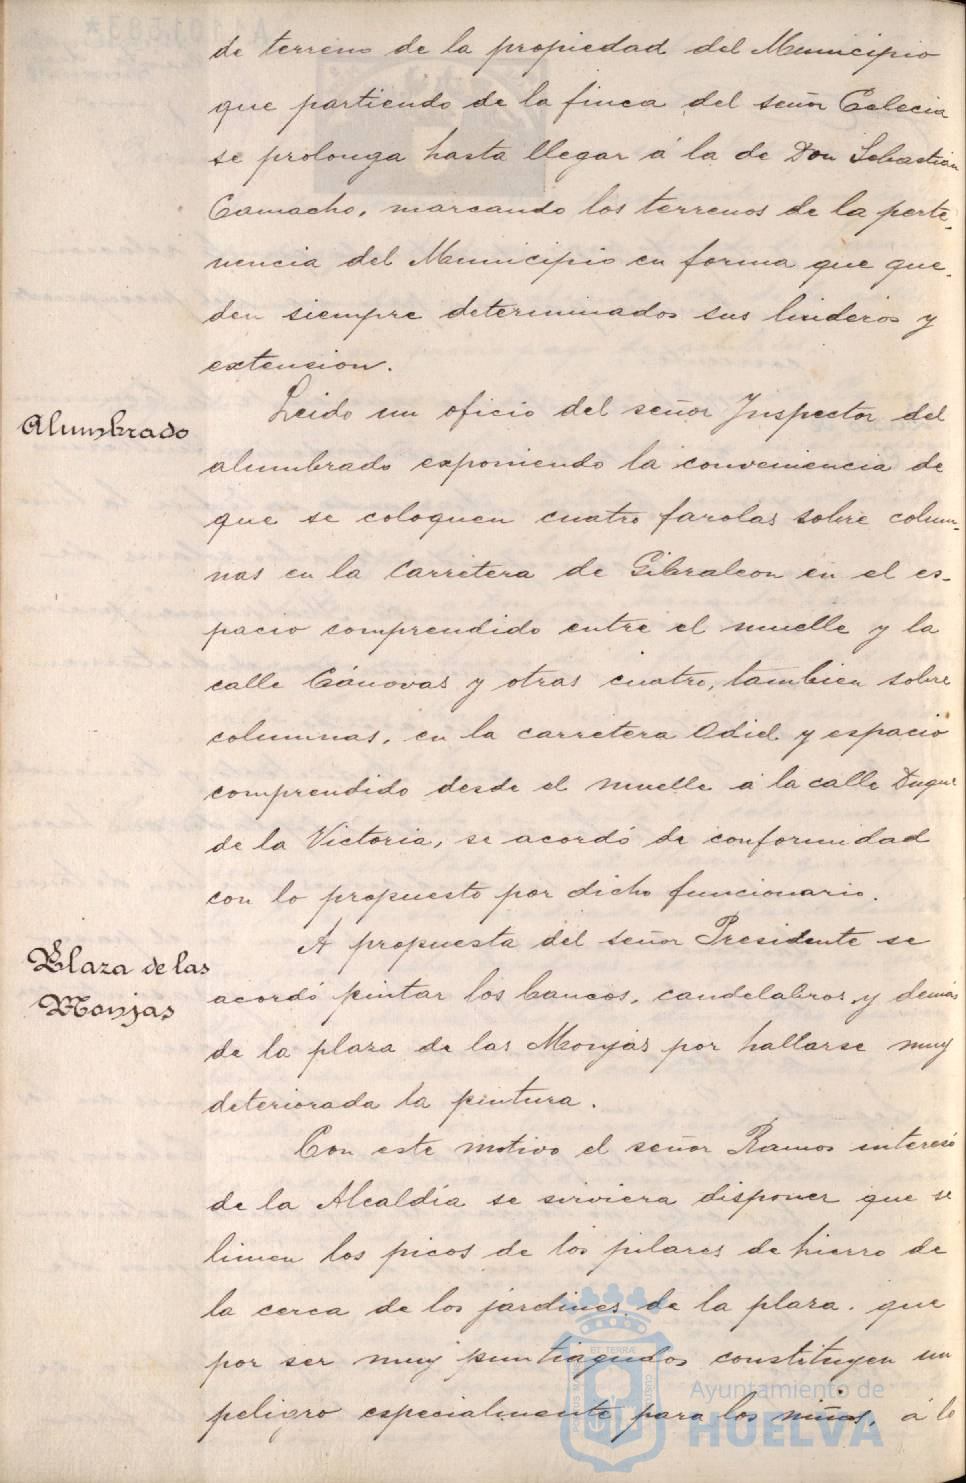 de terreno de la propiedad del Municipio
que partiendo de la finca del señor Celecia
se prolonga hasta llegar á la de Don Sebastian
Camacho, marcando los terrenos de la perte-
nencia del Municipio en forma que que-
den siempre determinados sus linderos y
extension.
Alumbrado
Leido un oficio del señor Inspector del
alumbrado exponiendo la conveniencia de
que se coloquen cuatro farolas sobre colum-
nas en la Carretera de Gibraleon en el es-
pacio comprendido entre el muelle y la
calle Cánovas y otras cuatro, tambien sobre
columnas, en la carretera Odiel y espacio
comprendido desde el muelle a la calle Duque
de la Victoria, se acordó de conformidad
con lo propuesto por dicho funcionario.
Plaza de las
Monjas
A propuesta del señor Presidente se
acordó pintar los bancos, candelabros y demás
de la plaza de las Monjas por hallarse muy
deteriorada la pintura.
Con este motivo el señor Ramos interesó
de la Alcaldía se sirviera disponer que se
limen los picos de los pilares de hierro de
la cerca de los jardines de la plaza. que
por ser muy puntiagudos constituyen un
peligro especialmente para los niños, á lo
Ayuntamiento de
HUELVA